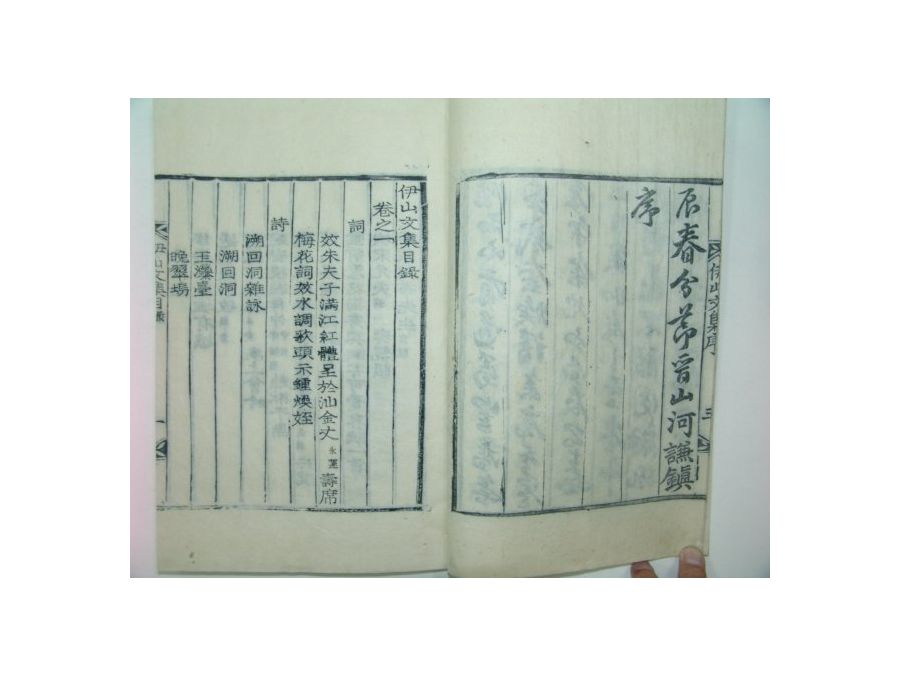 辰春分節晉山河謙鎭
序
伊山文集序
三
伊山文集目錄
卷之一
詞
效朱夫子滿江紅體呈於汕金丈永運壽席
梅花詞效水調歌頭示鍾煥姪
詩
溯回洞雜詠
溯回洞
玉灘臺
晩翠塢
伊山文集目錄
一